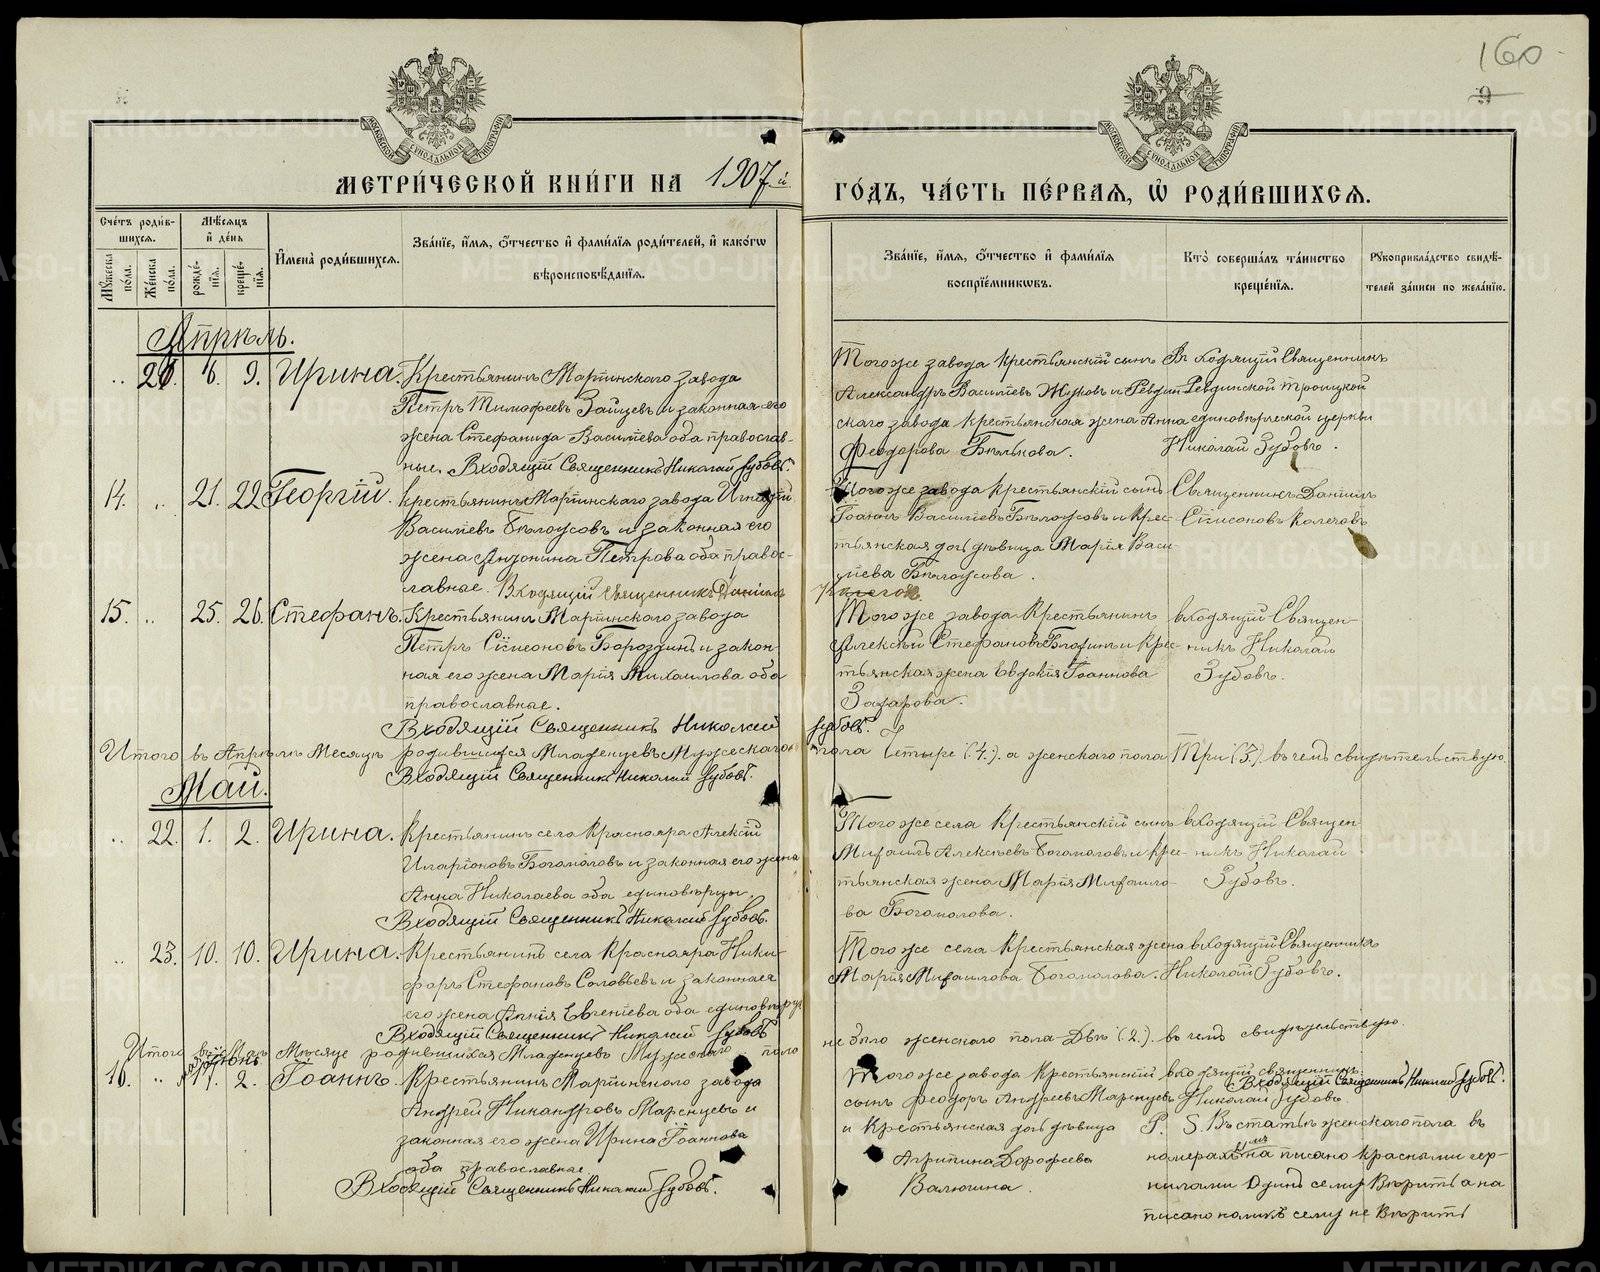 160
9
МОСКОВСКОЙ СѴНОДАЛЬНОЙ ТИПОГРАФІИ
МОСКОВСКОЙ СѴНОДАЛЬНОЙ ТИПОГРАФІИ
МЕТРИ́ЧЕСКОЙ КНИ́ГИ НА 1907й
ГО́ДЪ, ЧА́СТЬ ПЕ́РВАЯ, Ѡ РОДИ́ВШИХСЯ.
Сче́тъ роди́в-
шихся.
Мѣ́сяцъ
и҆ де́нь
Му́жеска по́ла.
Же́нска по́ла.
рожде́-
нїя.
креще́-
нїя.
И҆мена̀ роди́вшихся.
Зва́нїе, и҆́мя, ѻ҆́тчество и҆ фами́лїя роди́телей, и҆ како́гѡ
вѣроисповѣ́данїя.
Зва́нїе, и҆́мя, ѻ҆́тчество и҆ фами́лїя
воспрїе́мникѡвъ.
Кто̀ соверша́лъ та́инство
креще́нїя.
Рꙋкоприкла́дство свидѣ́-
телей за́писи по жела́нїю.
Апрѣль.
" 21. 6. 9. Ирина. Крестьянинъ Мартинскаго завода
Петръ Тимофеевъ Зайцевъ и законная его
жена Стефанида Василіева оба православ-
ные. Входящій Священникъ Николай Зубовъ.
Того же завода крестьянскій сынъ
Александръ Василіевъ Жуковъ и Ревдин-
скаго завода крестьянская жена Анна
Феодорова Бѣлькова.
Входящій Священникъ
Ревдинской Троицкой
единовѣрческой церкви
Николай Зубовъ.
14. " 21. 22. Георгій. Крестьянинъ Мартинскаго завода Игнатій
Василіевъ Бѣлоусовъ и законная его
жена Антонина Петрова оба правос-
лавные. Входящій Священникъ Даніилъ
Того же завода крестьянскій сынъ
Іоаннъ Василіевъ Бѣлоусовъ и крес-
тьянская дочь дѣвица Марія Васи-
ліева Бѣлоусова.
Священникъ Даніилъ
Сѵмеоновъ
15. " 25. 26. Стефанъ. Крестьянинъ Мартинскаго завода
Петръ Сѵмеоновъ Бороздинъ и закон-
ная его жена Марія Михаилова оба
православные.
Входящій Священникъ Николай Зубовъ.
Того же завода Крестьянинъ
Алексѣй Стефановъ и крес-
тьянская жена Евдокія Іоаннова
Захарова.
входящій Священ-
никъ Николай
Зубовъ.
Итого въ Апрѣлѣ Месяцѣ родившихся Младенцевъ Мужескаго пола Четыре (4.). а женскаго пола Три (3.). въ чемъ свидѣтельствую.
Входящій Священникъ Николай Зубовъ.
Май.
" 22. 1. 2. Ирина. Крестьянинъ села Краснояра Алексій
Иларіоновъ Богомоловъ и законная его жена
Анна Николаева оба единовѣрцы.
Входящій Священникъ Николай Зубовъ.
Того же села Крестьянскій сынъ
Михаилъ Алексѣевъ Богомоловъ и крес-
тьянская жена Марія Михаило-
ва Богомолова.
входящій Священ-
никъ Николай
Зубовъ.
" 23. 10. 10. Ирина. Крестьянинъ села Краснояра Ники-
форъ Стефановъ Соловьевъ и законная
его жена Евгеніева оба единовѣрцы
Входящій Священникъ Николай Зубовъ
Того же села Крестьянская жена
Марія Михаилова Богомолова.
входящій Священникъ
Николай Зубовъ.
Итого въ Маѣ Мѣсяце родившихся Младенцевъ Мужескаго пола не было женскаго пола Двѣ (2.). въ чемъ свидѣтельствую.
Входящій Священникъ Николай Зубовъ.
Іюнь
16. " 1. 2. Іоаннъ. Крестьянинъ Мартинскаго завода
Андрей Никандровъ Маренцевъ и
законная его жена Ирина Іоаннова
оба православные
Входящій Священникъ Николай Зубовъ.
Того же завода Крестьянскій
сынъ Феодоръ Андреевъ Маренцевъ
и Крестьянская дочь дѣвица
Агрипина Дорофеева
Валюгина.
входящій священникъ
Николай Зубовъ.
P. S. В статьѣ женскаго пола въ
номерахъ на писано красными чер-
нилами Одинъ сему Вѣрить а на
писано нолики сему не Вѣрить
METRIKI.GASO-URAL.RU